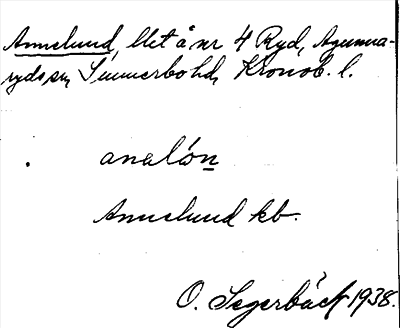 Annelund, llet å nr 4 Ryd, Agunna-
rydssn, Sunnerbohd, Kronob. l.
analón
Annelund kb.
O. Segerbäck 1938.